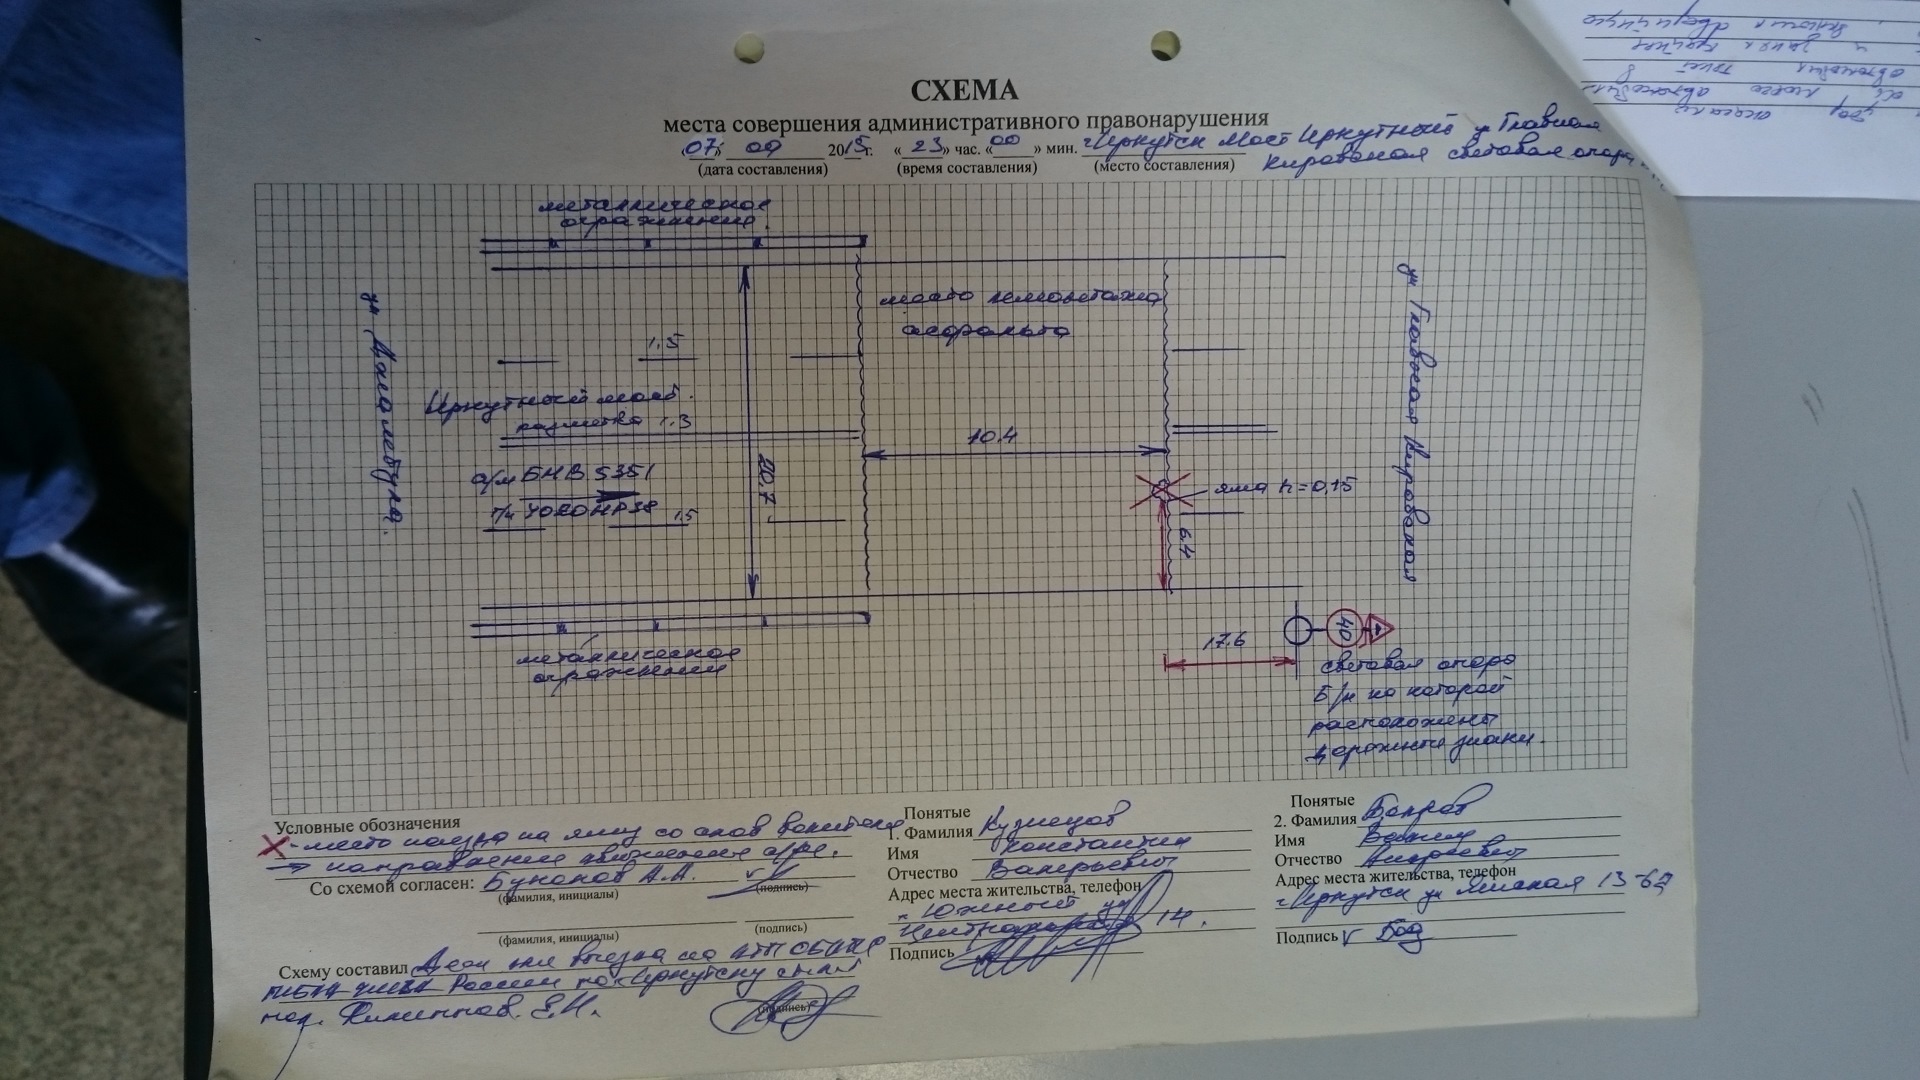 СХЕМА
места совершения административного правонарушения
«07» 09 2015г. «23» час. «00» мин. г. Иркутск Мост Иркутный ул Главная
(дата составления) (время составления) (место составления) Кировская световая опора
металлическое
ограждение
место демонтажа
асфальта
1.5
Иркутный мост.
разметка 1.3
10.4
20.7
а/м БМВ 535I
г/н
1.5
яма h=0,15
6.4
ул Главная Кировская
17.6
40
металлическое
ограждение
световая опора
Б/н на которой
расположены
дорожные знаки.
Условные обозначения
Х - место наезда на яму со слов водителя
→ направление движения а/м.
Со схемой согласен: А.А.
(фамилия, инициалы) (подпись)
(фамилия, инициалы) (подпись)
Схему составил
России по г. Иркутску
(подпись)
Филиппов. Е.Н.
Понятые
1. Фамилия Кузнецов
Имя Константин
Отчество Валерьевич
Адрес места жительства, телефон
п. Южный ул
14.
Подпись
Понятые
2. Фамилия
Имя Вадим
Отчество Андреевич
Адрес места жительства, телефон
г. Иркутск ул Ямская 13-62
Подпись